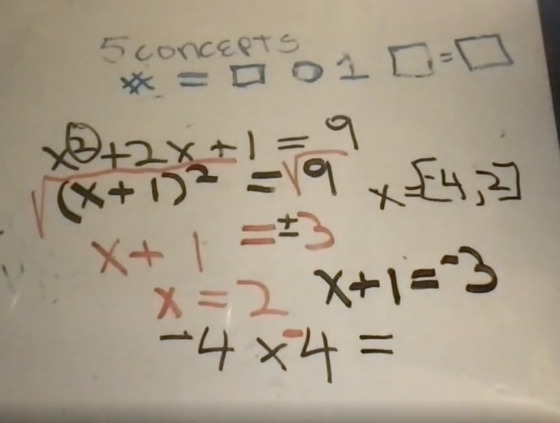 5 concepts
* = □ ○ 1 □=□
x²+2x+1=9
√(x+1)²=√9 x=[-4,2]
x+1=±3
x=2 x+1=-3
-4x-4=